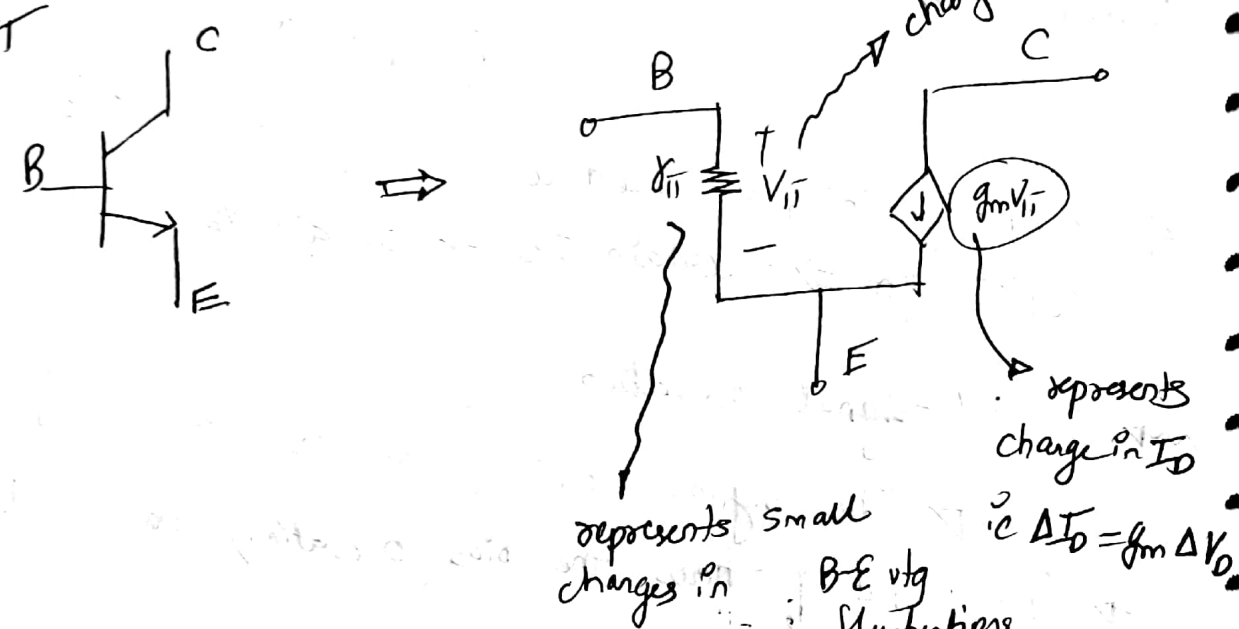 C
B
E
B
C
rπ
+
Vπ
−
gmVπ
E
represents
change in ID
ie ΔID = gm ΔVD
represents small
changes in B-E vtg